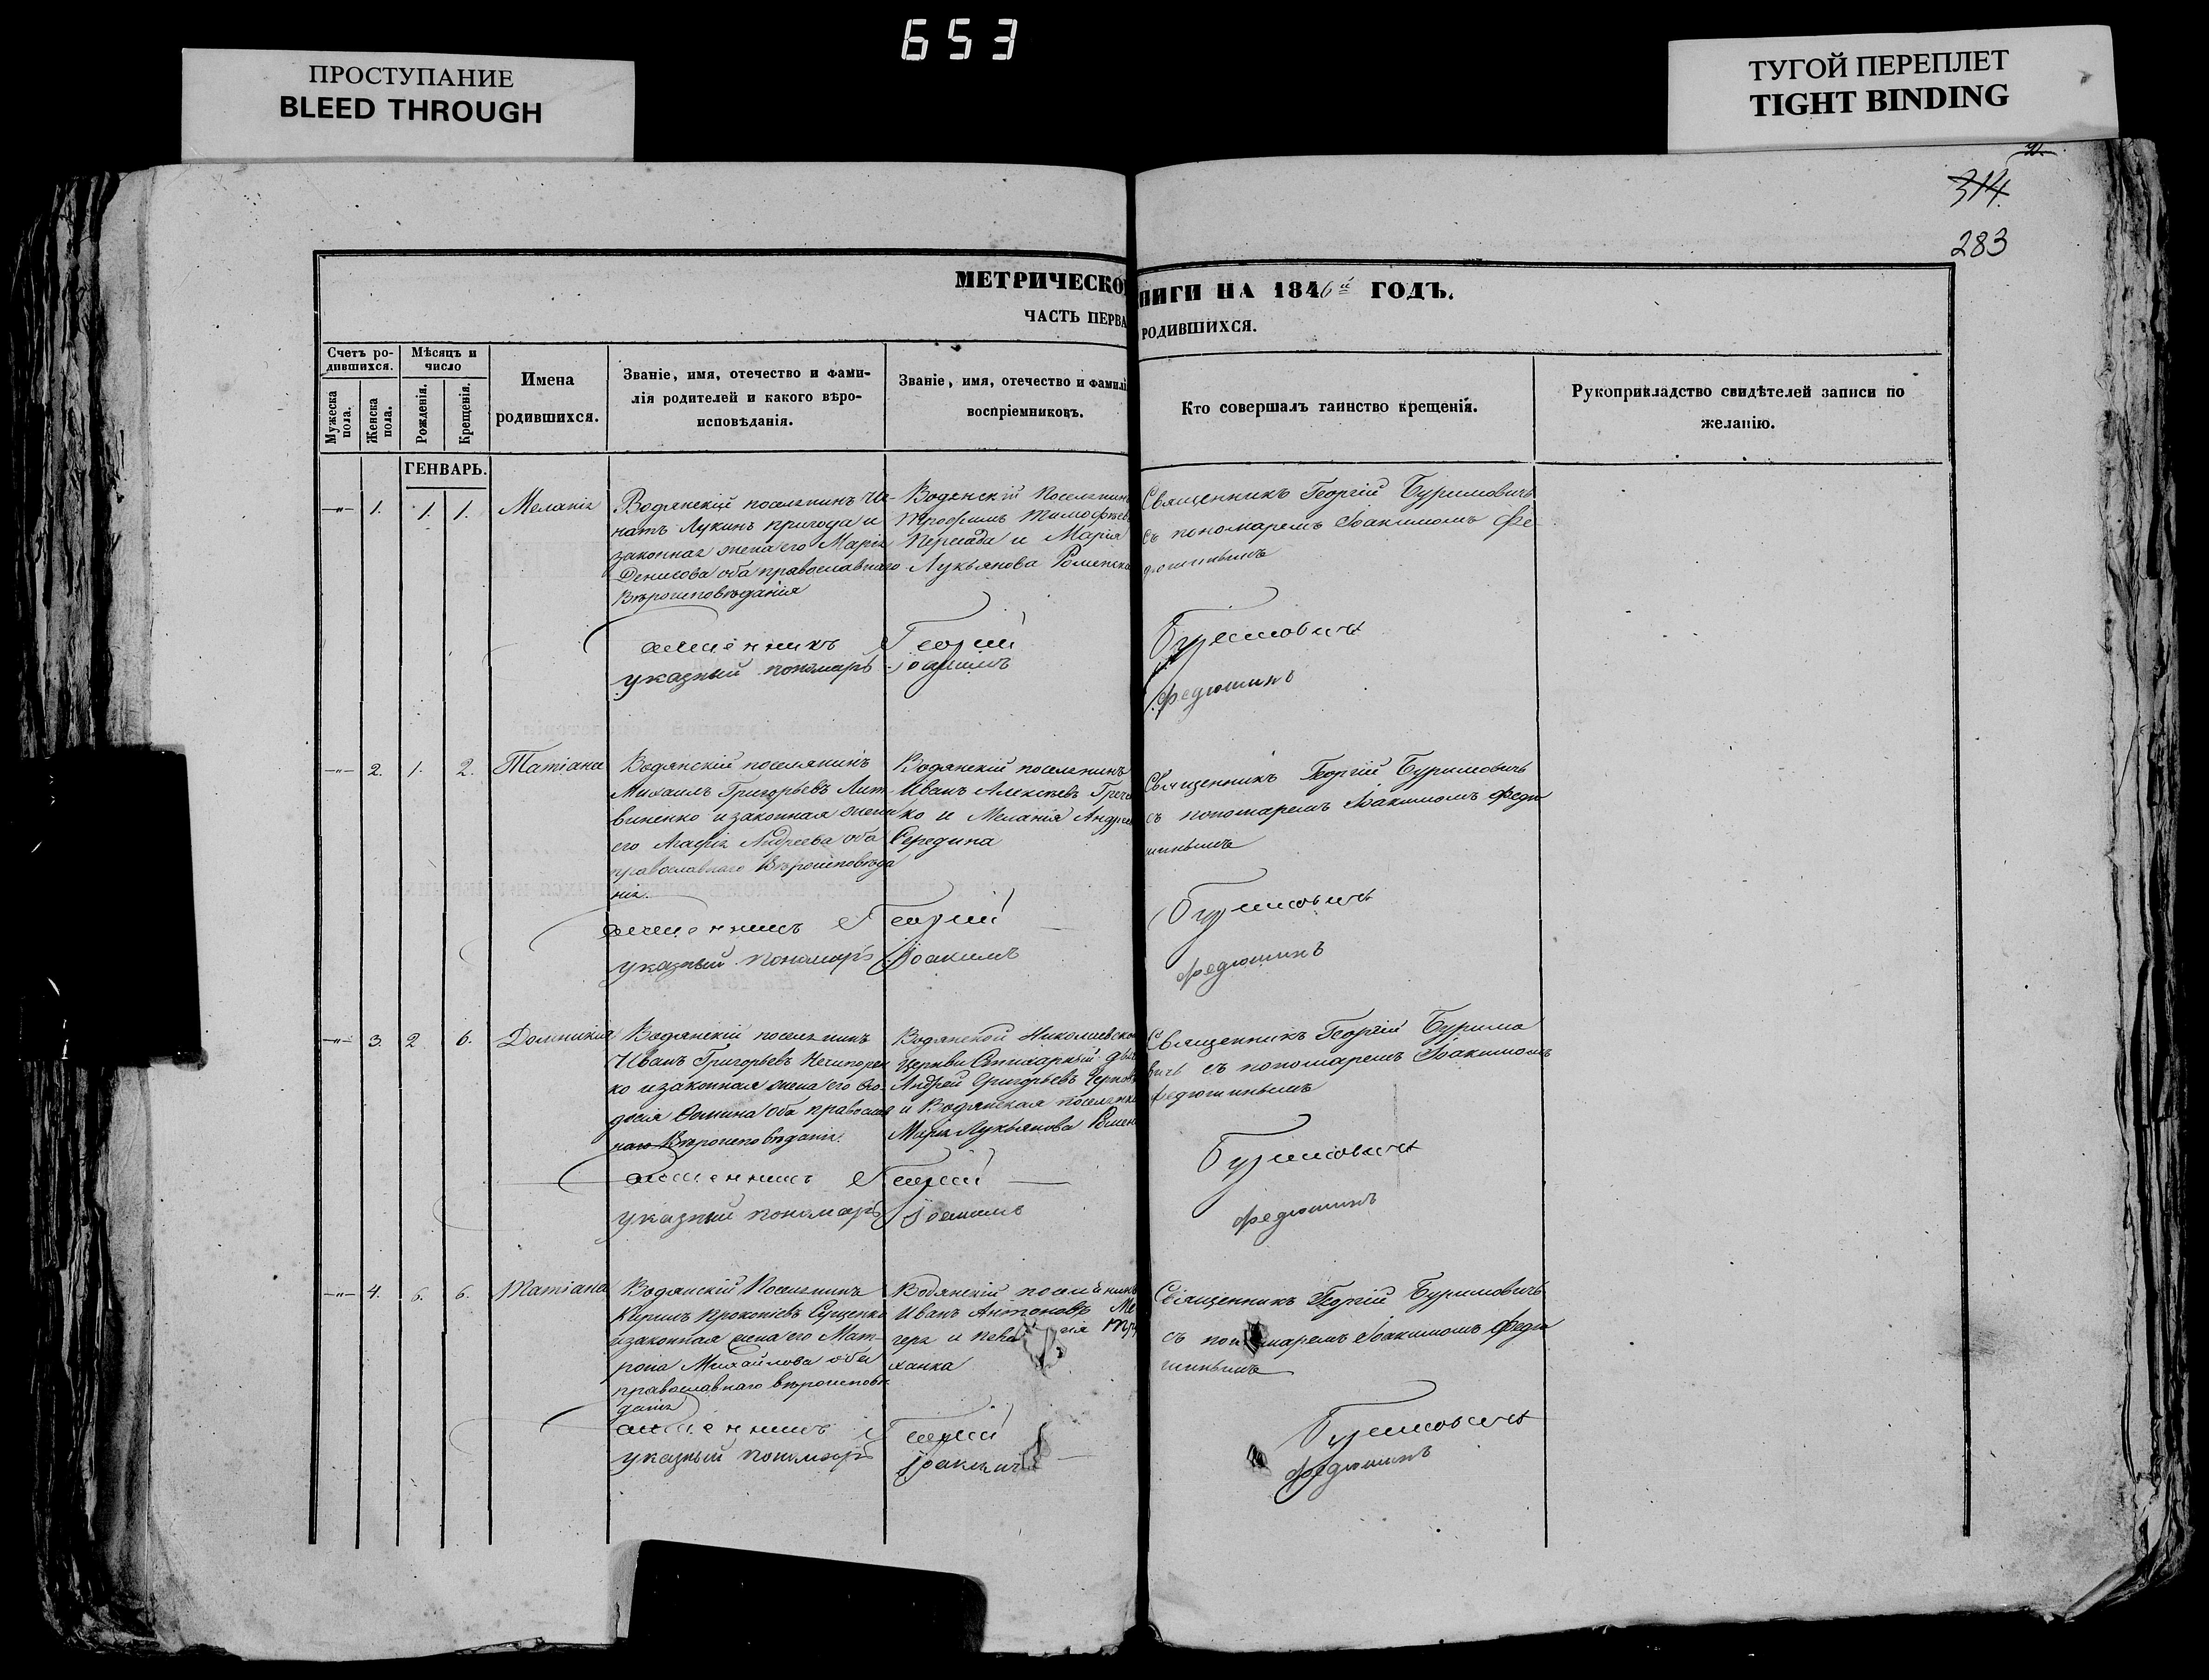 653
ПРОСТУПАНИЕ
BLEED THROUGH
ТУГОЙ ПЕРЕПЛЕТ
TIGHT BINDING
314.
283
МЕТРИЧЕСКО
НИГИ НА 1846й ГОДЪ.
ЧАСТЬ ПЕРВА
РОДИВШИХСЯ.
Счетъ ро-
дившихся.
Мужеска
пола.
Женска
пола.
Мѣсяцъ и
число
Рожденія.
Крещенія.
Имена
родившихся.
Званіе, имя, отечество и фами-
лія родителей и какого вѣро-
исповѣданія.
Званіе, имя, отечество и фамилі
воспріемниковъ.
Кто совершалъ таинство крещенія.
Рукоприкладство свидѣтелей записи по
желанію.
ГЕНВАРЬ.
1. 1. 1. Меланія
Водянскій поселянинъ Иг-
натъ Лукинъ пригода и
законная жена его Марія
Денисова оба православнаго
Вѣроисповѣданія
Водянскій Поселянин
Трофимъ Тимофѣев
и Марія
Лукьянова Роменска
Священникъ Георгій Буримовичъ
съ пономаремъ Іоакимомъ Фе
дюшинымъ
священникъ Георгій Буримовичъ
указный пономарь Іоакимъ Федюшинъ
2. 1. 2. Татіана
Водянскій поселянинъ
Михаилъ Григорьевъ Лит
виненко и законная жена
его Агафія Андреева оба
православнаго Вѣроисповѣда
нія.
Водянскій поселянинъ
Иванъ Алексѣевъ Греча
ко и Меланія Андрее
Середина
Священникъ Георгій Буримовичъ
съ пономаремъ Іоакимомъ Федю
шинымъ
священникъ Георгій Буримовичъ
указный пономарь Іоакимъ Федюшинъ
3. 2 6. Домникія
Водянскій поселянинъ
Иванъ Григорьевъ Нечипорен
ко и законная жена его Ѳео-
досія Фомина оба православ
наго Вѣроисповѣданія.
Водянской Николаевско
Церкви Стихарный
Андрей Григорьевъ
и Водянская поселянка
Марія Лукьянова Ромен
Священникъ Георгій Буримо
вичъ съ пономаремъ Іоакимомъ
Федюшинымъ
священникъ Георгій Буримовичъ
указный пономарь Іоакимъ Федюшинъ
4. 6. 6. Татіана
Водянскій Поселянинъ
Кирилъ Прокопіевъ Сущенко
и законная жена его Мат-
рона Михайлова оба
православнаго вѣроисповѣ
данія
Водянскій поселянинъ
Иванъ Антоновъ Ме
геря и
ханка
Священникъ Георгій Буримовичъ
съ пономаремъ Іоакимомъ Федю
шинымъ
священникъ Георгій Буримовичъ
указный пономарь Іоакимъ Федюшинъ